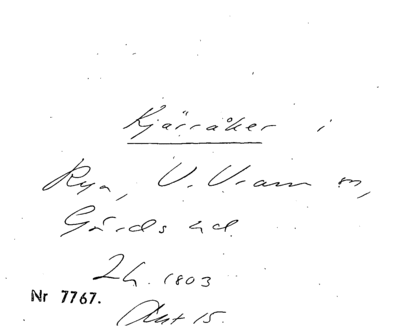 Kjärråker i
Rya, V. Vram sn,
Gärds hd.
Lh. 1803
Nr 7767.
Akt 15.